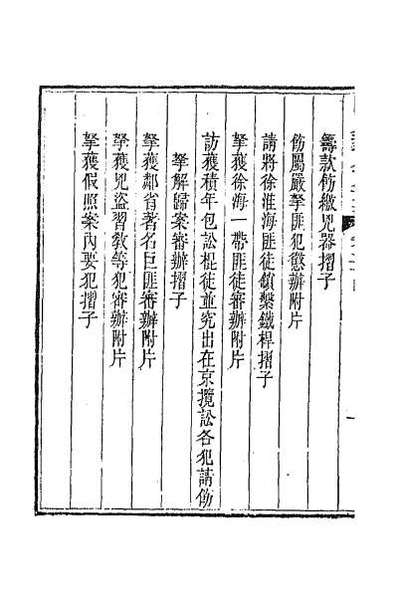 籌款飭繳兇器摺子
飭屬嚴拏匪犯懲辦附片
請將徐淮海匪徒鎖繫鐵桿摺子
拏獲徐海一帶匪徒審辦附片
訪獲積年包訟棍徒並究出在京攬訟各犯請飭
拏解歸案審辦摺子
拏獲鄰省著名巨匪審辦附片
拏獲兇盜習教等犯審辦附片
拏獲假照案內要犯摺子